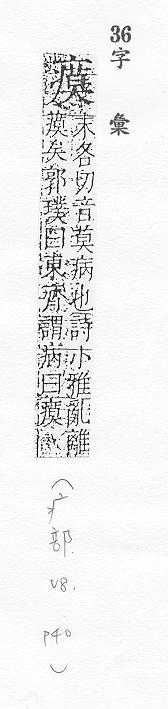 36字　彙
瘼
末各切音莫病也詩小雅亂離
瘼矣郭璞曰東齊謂病曰瘼
（疒部 V8. P40）